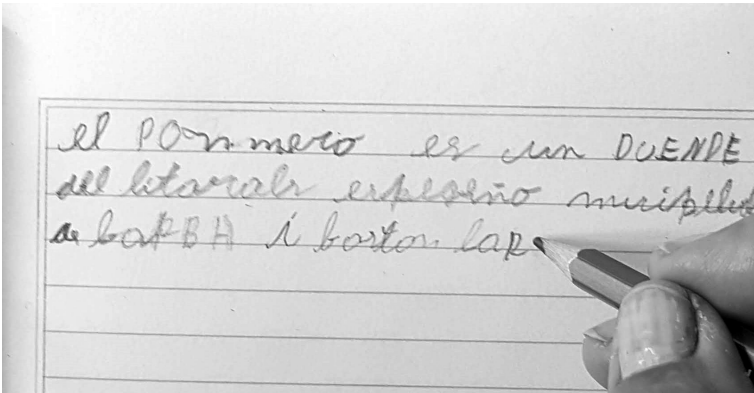 el POmmero es un DUENDE
del litarals espeseño muipelu
de baRBA i baston laR